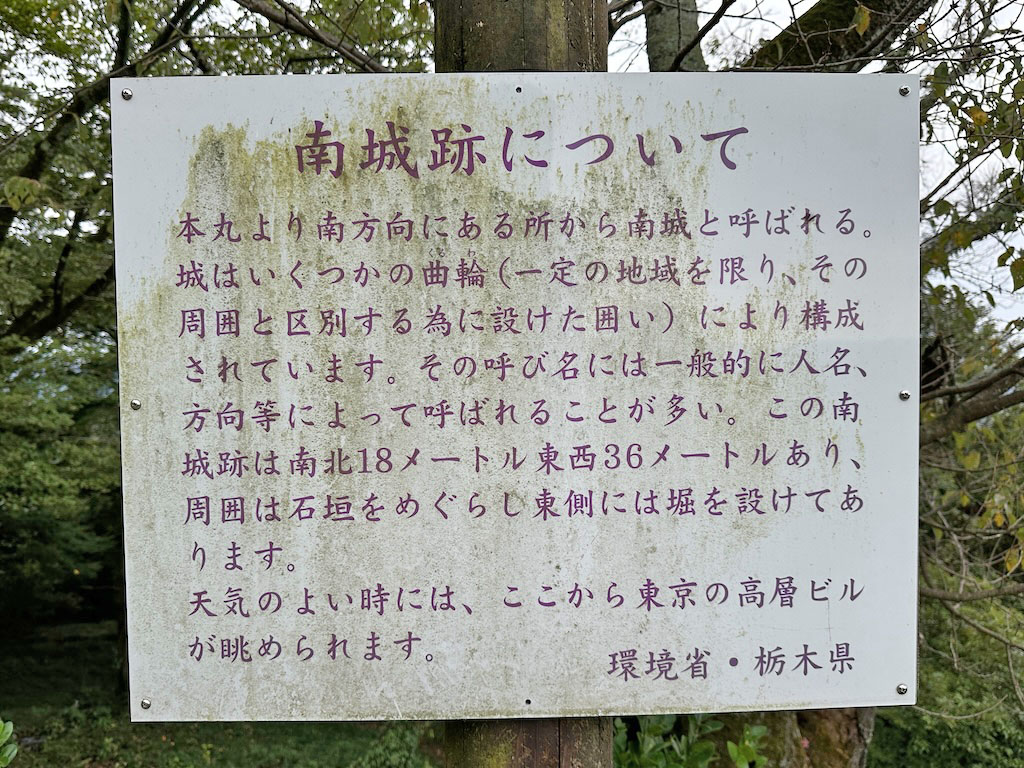 南城跡について
本丸より南方向にある所から南城と呼ばれる。
城はいくつかの曲輪(一定の地域を限り、その
周囲と区別する為に設けた囲い)により構成
されています。その呼び名には一般的に人名、
方向等によって呼ばれることが多い。この南
城跡は南北18メートル東西36メートルあり、
周囲は石垣をめぐらし東側には堀を設けてあ
ります。
天気のよい時には、ここから東京の高層ビル
が眺められます。
環境省・栃木県